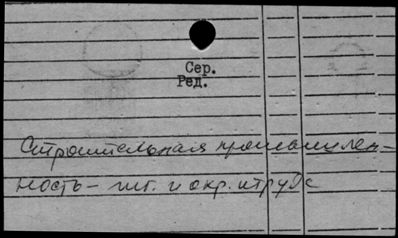 Сер.
Ред.
Строительная промышлен-
ность – гиг. и охр. труда